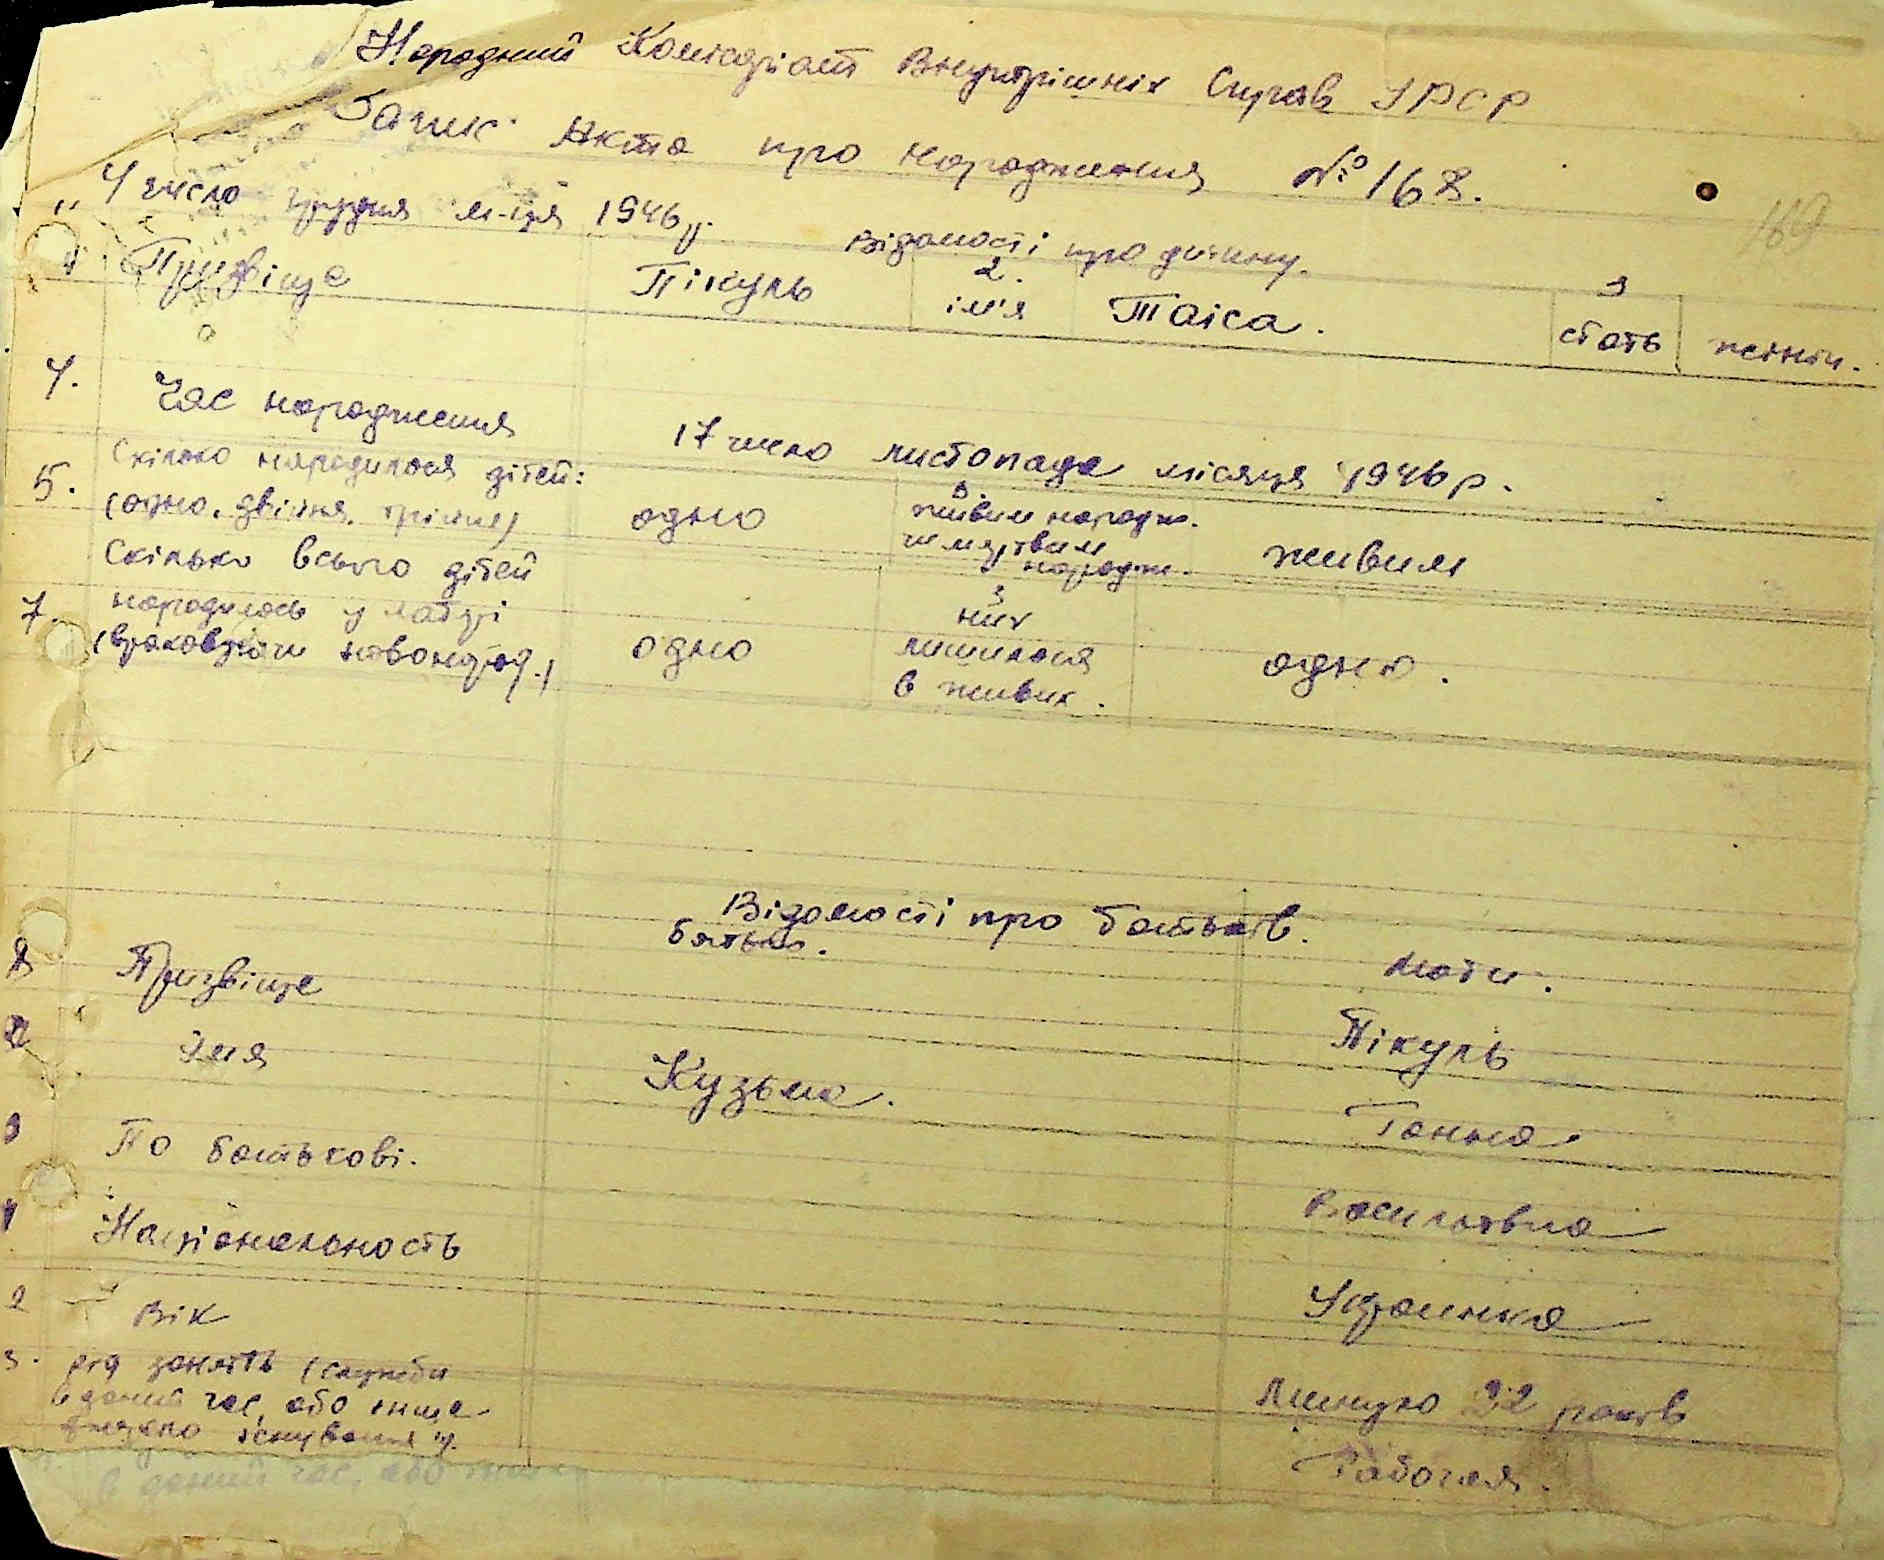 Народний Комісаріат Внутрішніх Справ УРСР
Запис Акта про народження № 168.
169
"4 число грудня м-ця 1946 р.
Відомості про дитину.
Призвіще Пікуль 2. ім'я Таіса. 3 стать жіноч.
4. Час народження 17 число листопада місяця 1946 р.
5. Скілько народилося дітей: (одно, двійня, трійня) одно живим народж. чи мертвим народж. живим
7. Скілько всього дітей народилось у матері (враховуючи новонарод.) одно з них лишилося в живих. одно.
Відомості про батьків.
батько. мати.
8 Призвіще Пікуль
Імя Кузьма. Ганна.
По батькові. Василівна
Національность Украинка
2 Вік Минуло 22 років
3. рід занять (служби в даний час, або інше джерело існування). Рабочая.
в даний час, або інше